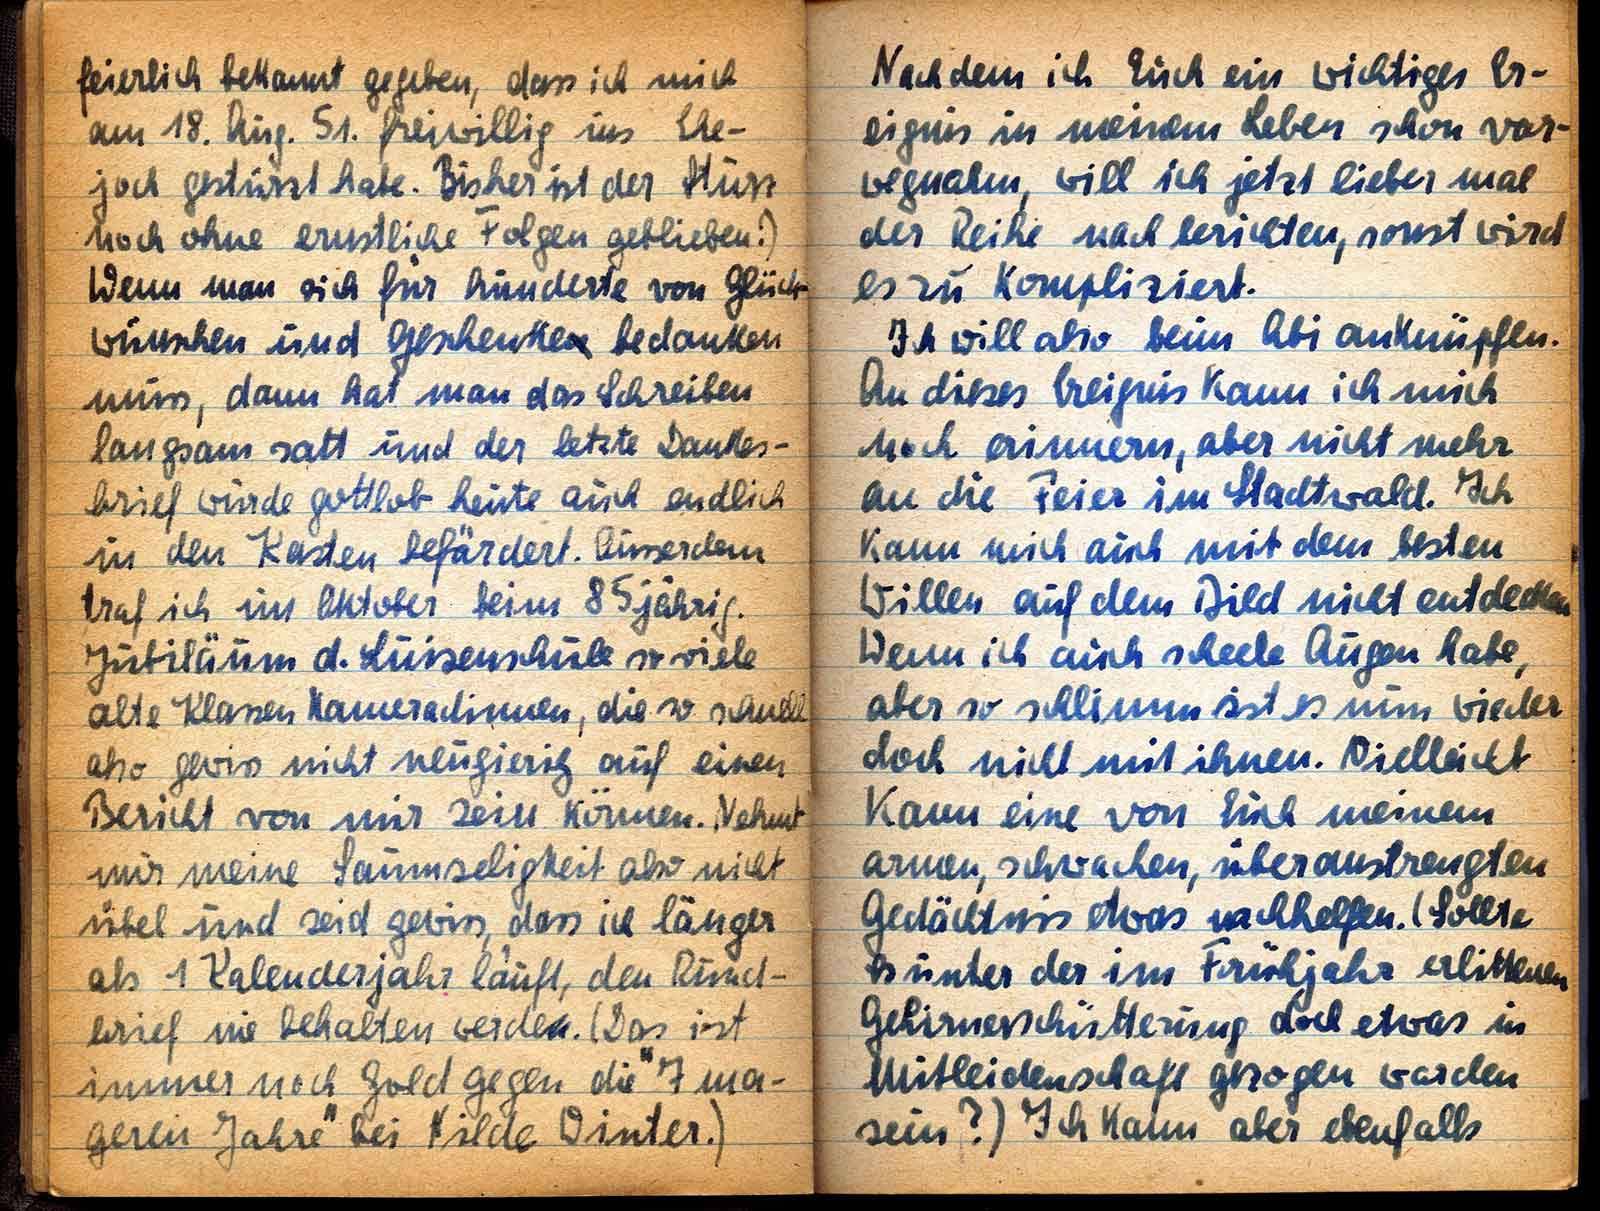 feierlich bekannt gegeben, dass ich mich
am 18. Aug. 51. freiwillig ins Ehe-
joch gestürzt habe. Bisher ist der Sturz
noch ohne ernstliche Folgen geblieben!)
Wenn man sich für hunderte von Glück-
wünschen und Geschenken bedanken
muss, dann hat man das Schreiben
langsam satt und der letzte Dankes-
brief wurde gottlob heute auch endlich
in den Kasten befördert. Ausserdem
traf ich im Oktober beim 85jährig.
Jubiläum d. Luisenschule so viele
alte Klassenkameradinnen, die so schnell
also gewiss nicht neugierig auf einen
Bericht von mir sein können. Nehmt
mir meine Saumseligkeit also nicht
übel und seid gewiss, dass ich länger
als 1 Kalenderjahr läuft, den Rund-
brief nie behalten werde. (Das ist
immer noch Gold gegen die "7 ma-
geren Jahre" bei Hilde Winter.)
Nachdem ich Euch ein wichtiges Er-
eignis in meinem Leben schon vor-
wegnahm, will ich jetzt lieber mal
der Reihe nach berichten, sonst wird
es zu kompliziert.
Ich will also beim Abi anknüpfen.
An dieses Ereignis kann ich mich
noch erinnern, aber nicht mehr
an die Feier im Stadtwald. Ich
kann mich auch mit dem besten
Willen auf dem Bild nicht entdecken
Wenn ich auch scheele Augen habe,
aber so schlimm ist es nun wieder
doch nicht mit ihnen. Vielleicht
kann eine von Euch meinem
armen, schwachen, überanstrengten
Gedächtnis etwas nachhelfen. (Sollte
es unter der im Frühjahr erlittenen
Gehirnerschütterung doch etwas in
Mitleidenschaft gezogen worden
sein?) Ich kann aber ebenfalls